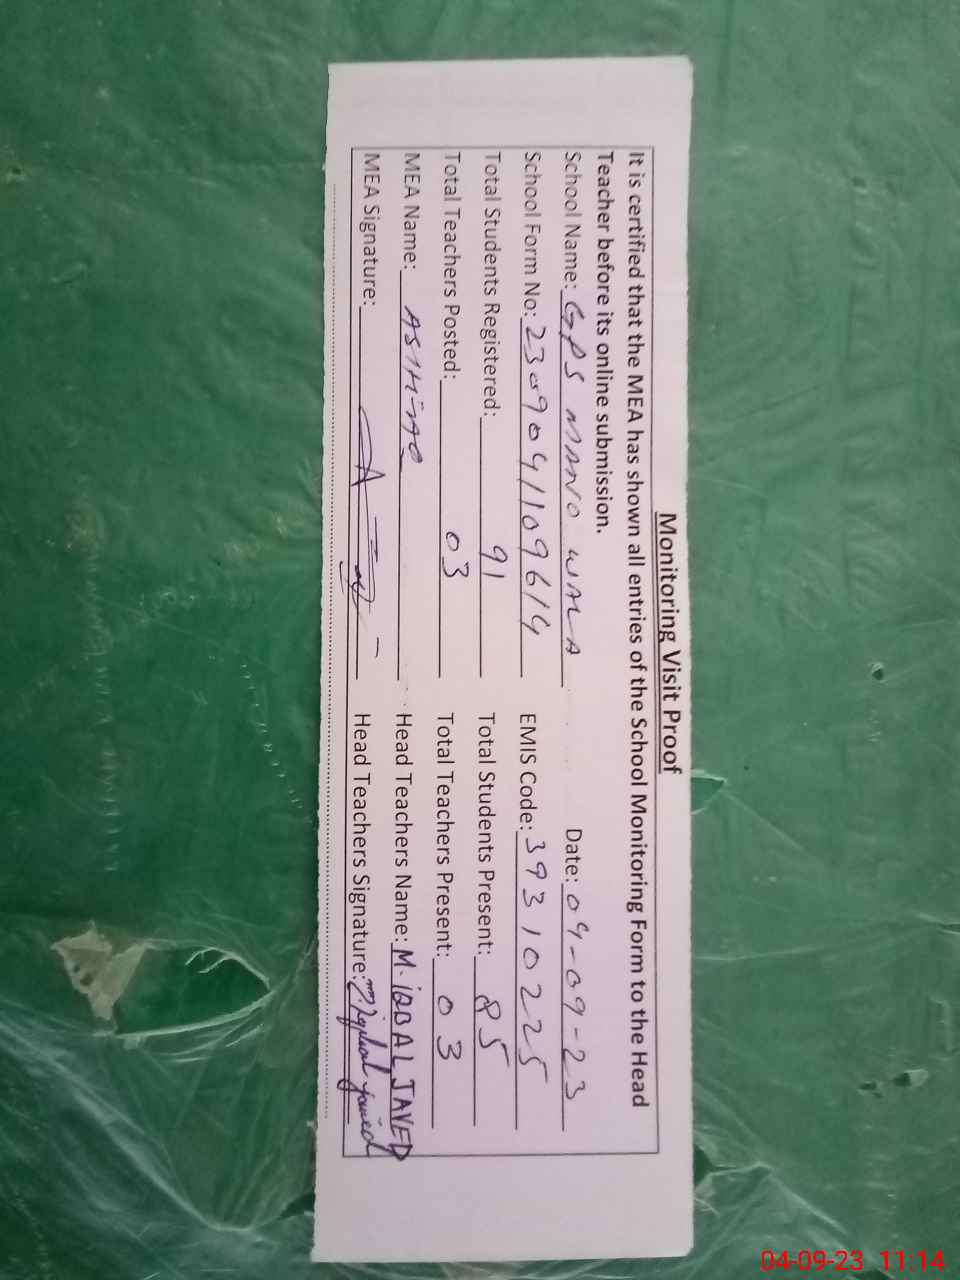 Monitoring Visit Proof
It is certified that the MEA has shown all entries of the School Monitoring Form to the Head
Teacher before its online submission.
School Name: GPS MANO WALA Date: 04-09-23
School Form No: 2309041109614 EMIS Code: 39310225
Total Students Registered: 91 Total Students Present: 85
Total Teachers Posted: 03 Total Teachers Present: 03
MEA Name: Head Teachers Name: M. iQBAL JAVED
MEA Signature: Head Teachers Signature: M iqbal javed
04-09-23 11:14